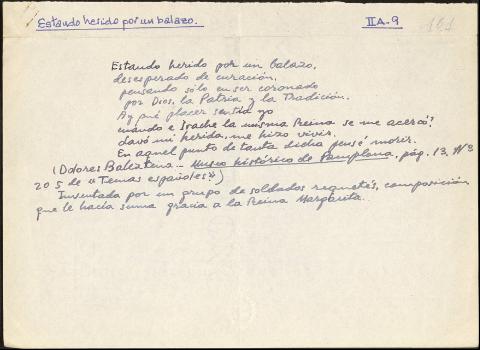 Estando herido por un balazo. IIA-9 161
Estando herido por un balazo,
desesperado de curación,
pensando sólo en ser coronado
por Dios, la Patria y la Tradición.
Ay qué placer sentía yo
cuando e Irache la misma Reina se me acercó!
lavó mi herida, me hizo vivir.
En aquel punto de tanta dicha pensé morir.
(Dolores Baleztena - Museo histórico de Pamplona, pág. 13, Nº
205 de "Temas españoles")
Inventada por un grupo de soldados requetés, composición
que le hacía suma gracia a la Reina Margarita.